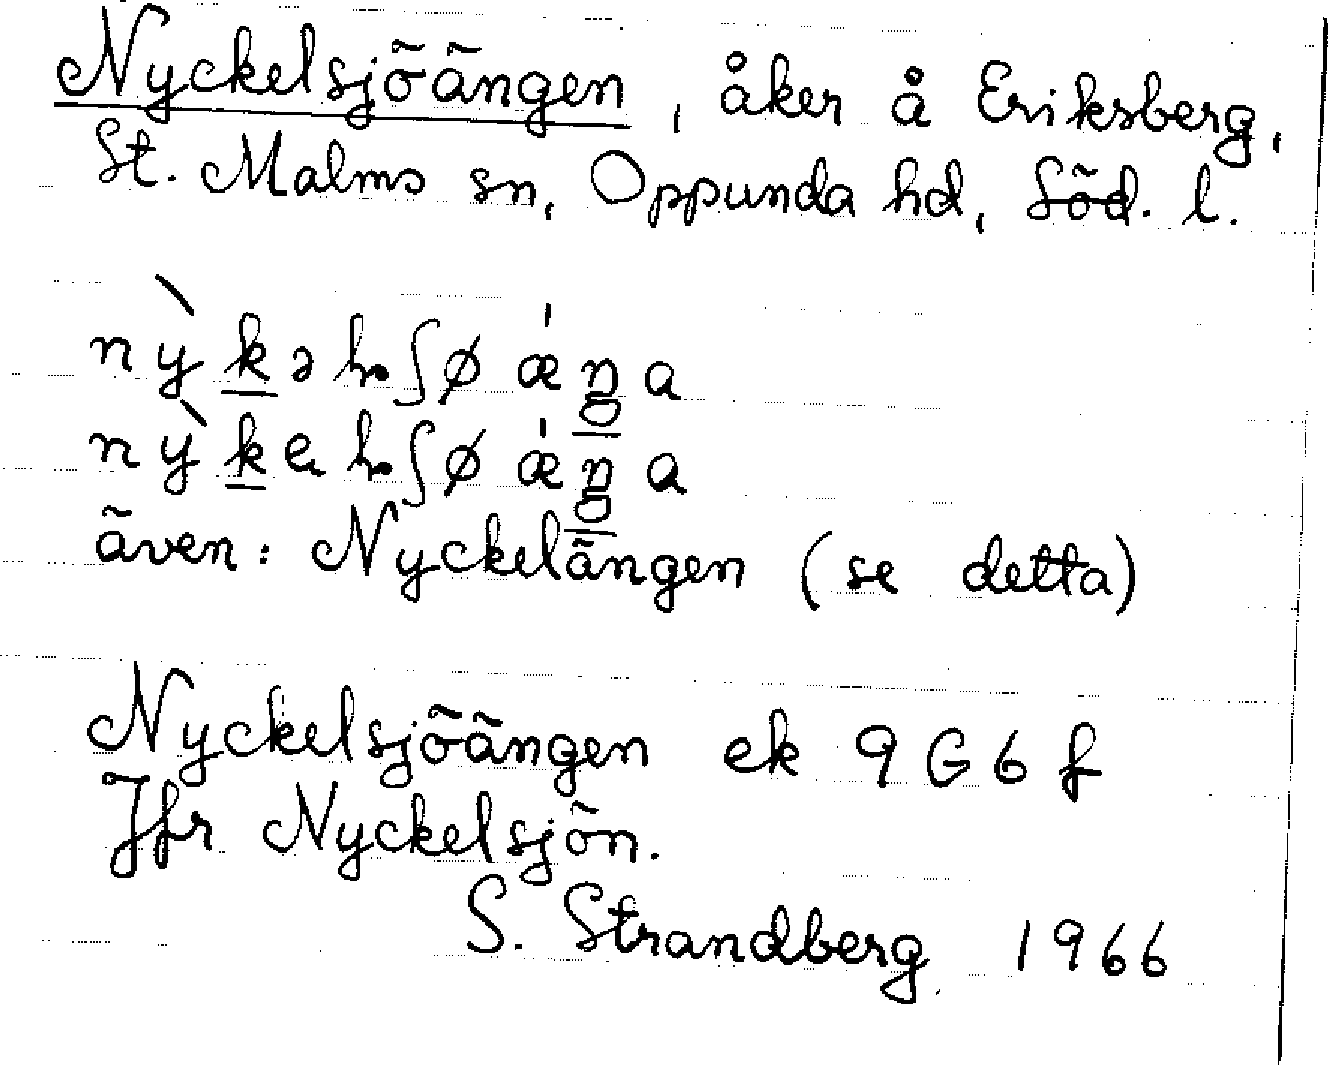 Nyckelsjöängen, åker å Eriksberg,
St. Malms sn, Oppunda hd, Söd. l.
även: Nyckelängen (se detta)
Nyckelsjöängen ek 9G6f
Jfr Nyckelsjön.
S. Strandberg 1966